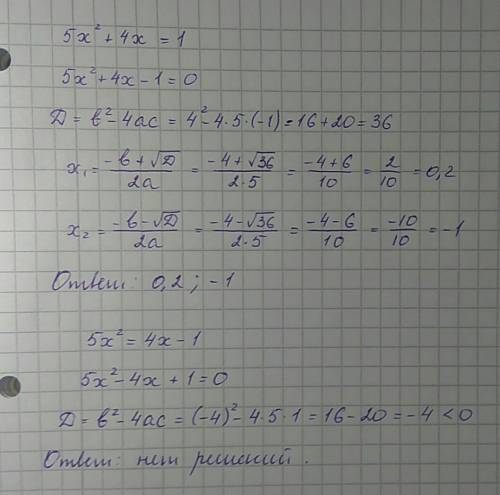 5x² + 4x = 1
5x² + 4x - 1 = 0
D = b² - 4ac = 4² - 4·5·(-1) = 16 + 20 = 36
x₁ = (-b + √D)/(2a) = (-4 + √36)/(2·5) = (-4 + 6)/10 = 2/10 = 0,2
x₂ = (-b - √D)/(2a) = (-4 - √36)/(2·5) = (-4 - 6)/10 = -10/10 = -1
Ответ: 0,2 ; -1
5x² = 4x - 1
5x² - 4x + 1 = 0
D = b² - 4ac = (-4)² - 4·5·1 = 16 - 20 = -4 < 0
Ответ: нет решений.